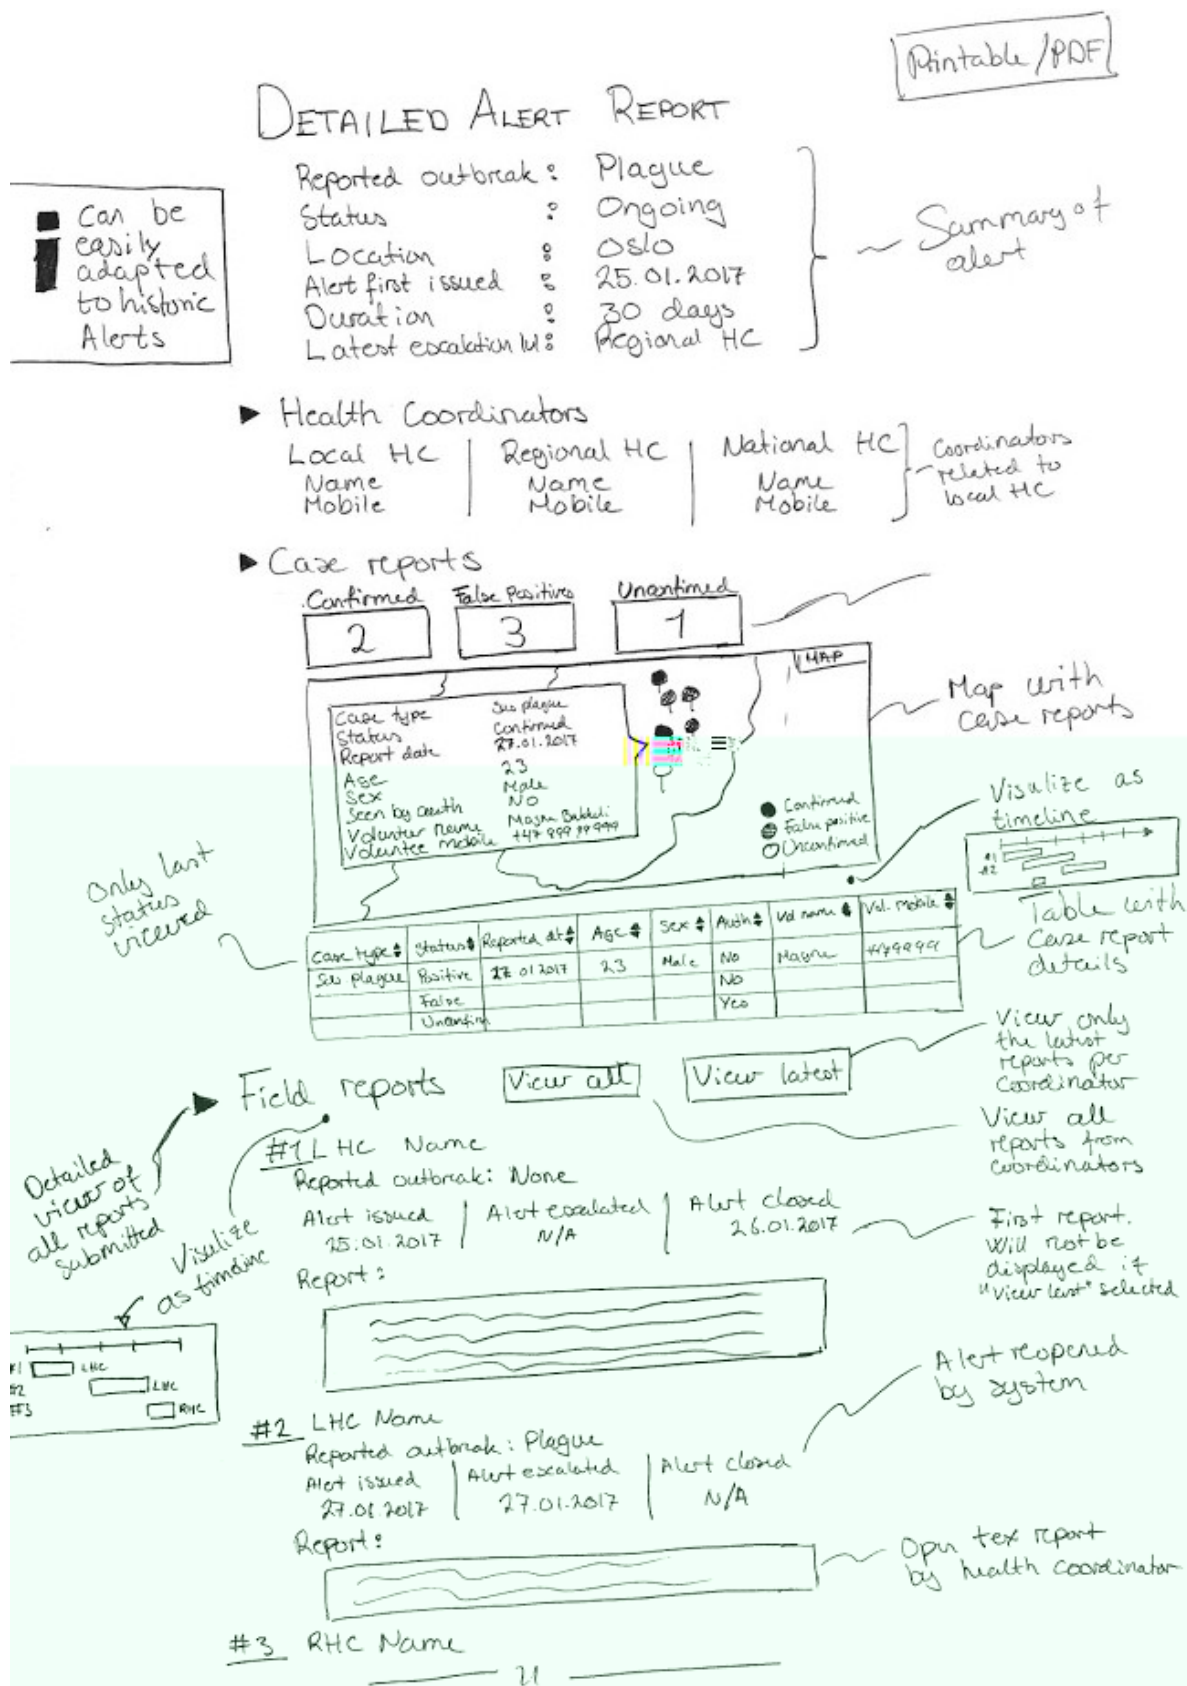 Printable/PDF
DETAILED ALERT REPORT
Reported outbreak: Plague
Status : Ongoing
Location : Oslo
Alert first issued : 25.01.2017
Duration : 30 days
Latest escalation lvl: Regional HC
Summary of
alert
Can be
easily
adapted
to historic
Alerts
Health Coordinators
Local HC
Name
Mobile
Regional HC
Name
Mobile
National HC
Name
Mobile
Coordinators
related to
local HC
Case reports
Confirmed
2
False Positives
3
Unconfirmed
1
MAP
Map with
case reports
Case type Sus plague
Status Confirmed
Report date 27.01.2017
Age 23
Sex Male
Seen by auth NO
Volunteer name Magne
Voluntee mobile +47 999 99 999
Confirmed
False positive
Unconfirmed
Visulize as
timeline
#1
#2
Only last
status
viewed
Case type Status Reported dt Age Sex Auth Vol name Vol. mobile
Sus plague Positive 27 01 2017 23 Male No Magne +479999
False No
Unconfirm Yes
Table with
Case report
details
Field reports
View all
View latest
View only
the latest
reports per
Coordinator
View all
reports from
coordinators
Detailed
view of
all reports
submitted
Visulize
as timeline
#1 LHC
#2 LHC
#3 RHC
#1 LHC Name
Reported outbreak: None
Alert issued
25.01.2017
Alert escalated
N/A
Alert closed
26.01.2017
Report:
First report.
Will not be
displayed if
"View last" selected
Alert reopened
by system
#2 LHC Name
Reported outbreak: Plague
Alert issued
27.01.2017
Alert escalated
27.01.2017
Alert closed
N/A
Report:
Open tex report
by health coordinator
#3 RHC Name